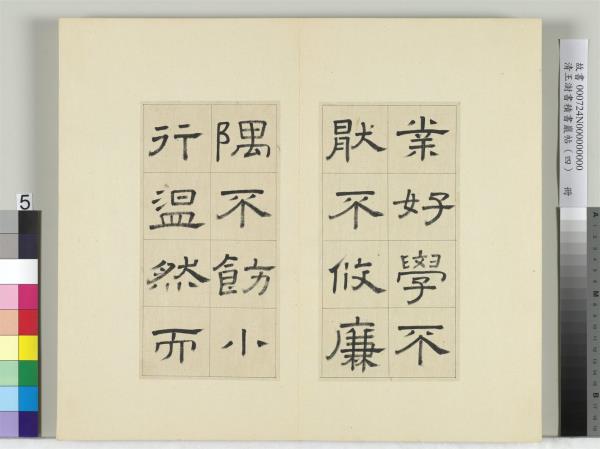 業好學不
猒不攸廉
隅不飭小
行温然而
故書 000724N000000000
清王澍書積書巖帖（四） 冊
5
A
M
B